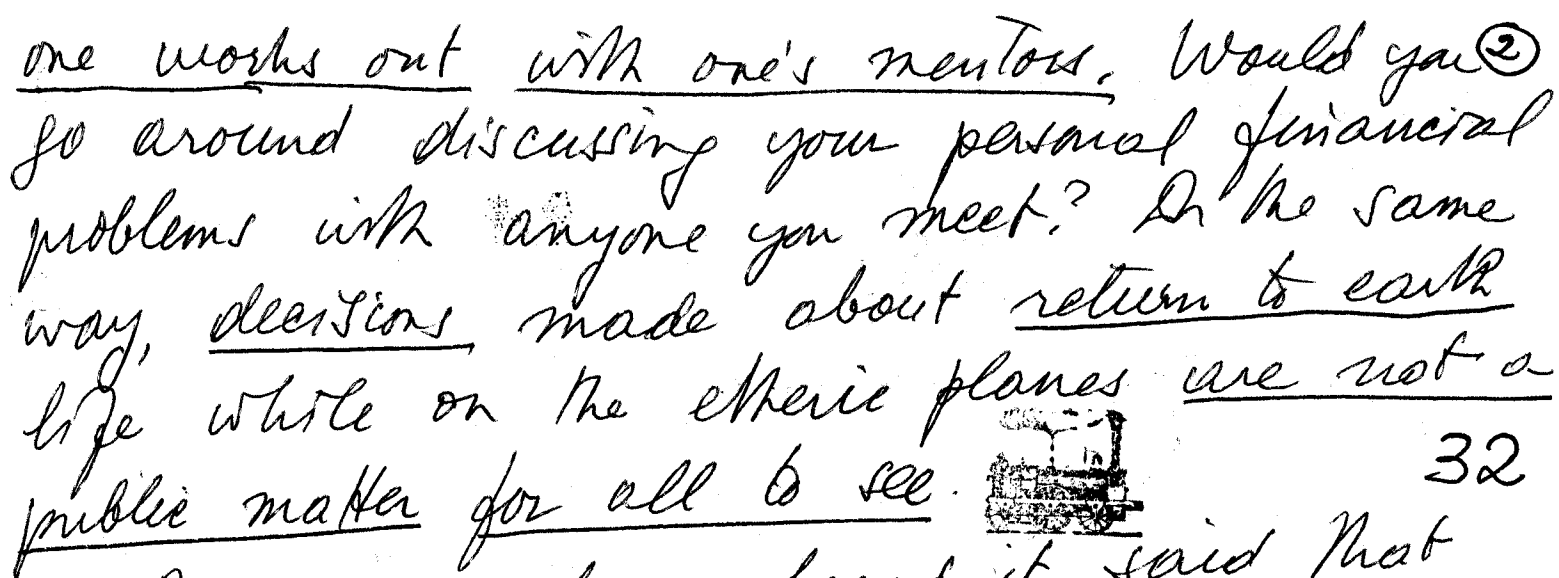 one works out with one's mentors. Would you ②
go around discussing your personal financial
problems with anyone you meet? In the same
way, decisions made about return to earth
life while on the etheric planes are not a
public matter for all to see.
32
it said that